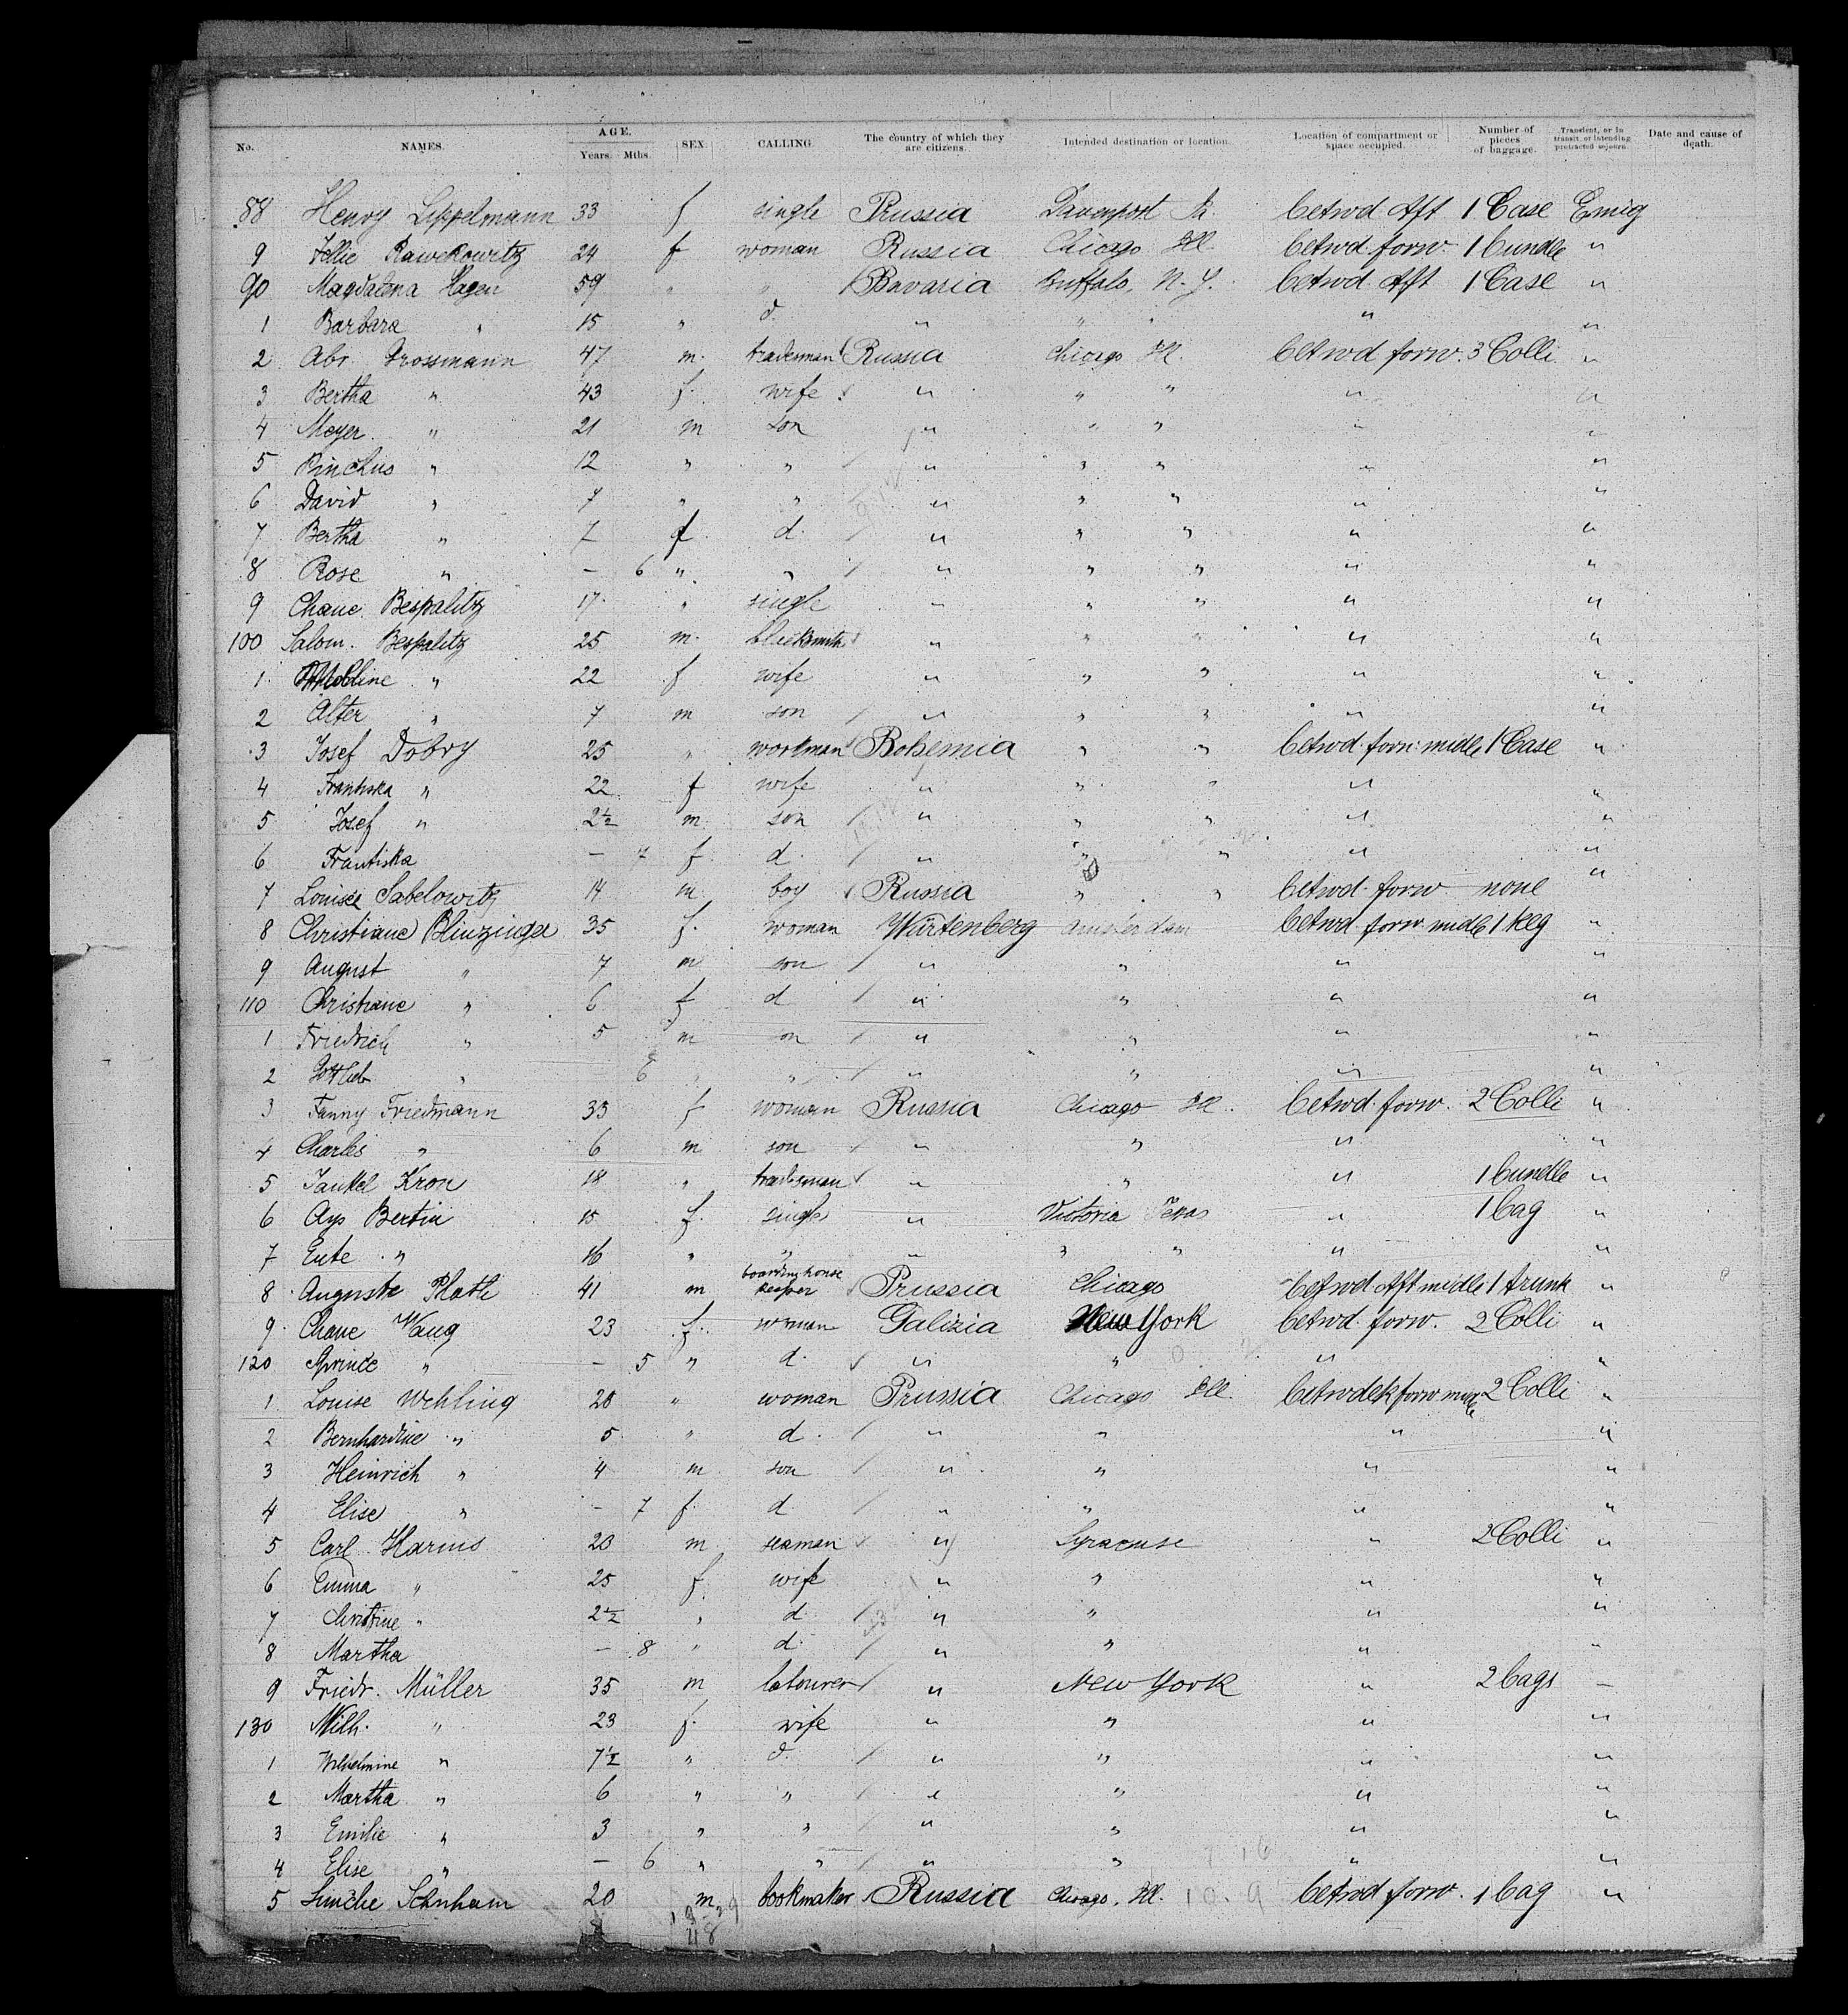 No. NAMES. AGE. Years. Mths. SEX CALLING The country of which they are citizens. Intended destination or location. Location of compartment or space occupied. Number of pieces of baggage. Transient, or in transit, or intending protracted sojourn. Date and cause of death.
88 Henry Lippelmann 33 f single Prussia Davenport betwd Aft 1 Case Emig
9 Rawekowitz 24 f woman Russia Chicago Ill. betwd forw. 1 bundle "
90 Magdalena Hagen 59 " " Bavaria Buffalo, N.Y. betwd Aft 1 Case "
1 Barbara " 15 " d. " " " "
2 Abr. Grossmann 47 m. tradesman Russia Chicago Ill. betwd forw. 3 Colli "
3 Bertha " 43 f. wife " " " " "
4 Meyer " 21 m son " " " " "
5 Pinchus " 12 " " " " " " "
6 David " 7 " " " " " " "
7 Bertha " 7 f. d. " " " " "
8 Rose " — 6 " " " " " " "
9 Chane Bespalitz 17 " single " " " " "
100 Salom. Bespalitz 25 m. blacksmith " " " " "
1 " 22 f wife " " " " "
2 Alter " 7 m son " " " " "
3 Josef Dobry 25 " workman Bohemia " " betwd forw. midle 1 Case "
4 Frantiska " 22 f wife " " " " "
5 Josef " 2½ m son " " " " "
6 Frantiska — 7 f. d. " " " " "
7 Louise Sabelowitz 14 m. boy Russia " " betwd forw none "
8 Christiane Blinzinger 35 f. woman Würtenberg Amsterdam betwd forw midle 1 keg "
9 August " 7 m son " " " "
110 Christiane " 6 f d " " " "
1 Friedrich " 5 m on " " " "
2 Gottlieb " 6 " " " " " "
3 Fanny Friedmann 33 f woman Russia Chicago Ill. betwd forw. 2 Colli "
4 Charles " 6 m son " " " "
5 Jankel Kron 18 " tradesman " " " 1 bundle "
6 Bertin 15 f. single " Victoria Texas " 1 bag "
7 Eute " 16 " " " " " " "
8 Auguste Plath 41 m boarding house keeper Prussia Chicago betwd Aft midle 1 trunk "
9 Chane Wang 23 f. woman Galizia New York betwd forw. 2 Colli "
120 Sprince " — 5 " d. " " " "
1 Louise Wehling 28 " woman Prussia Chicago Ill. betwdek forw midle 2 Colli "
2 Bernhardine " 5 " d. " " " "
3 Heinrich " 4 m son " " " "
4 Elise " — 7 f. d " " " "
5 Carl Harms 20 m seaman " Syracuse " 2 Colli "
6 Emma " 25 f wife " " " "
7 Christine " 2½ " d " " " "
8 Martha — 8 " d. " " " "
9 Friedr. Müller 35 m labourer " New York " 2 bags —
130 Wilh. " 23 f. wife " " " "
1 Wilhelmine " 7½ " d. " " " "
2 Martha " 6 " " " " " "
3 Emilie " 3 " " " " " "
4 Elise " — 6 " " " " " "
5 20 m bookmaker Russia Chicago, Ill. betwd forw. 1 bag "